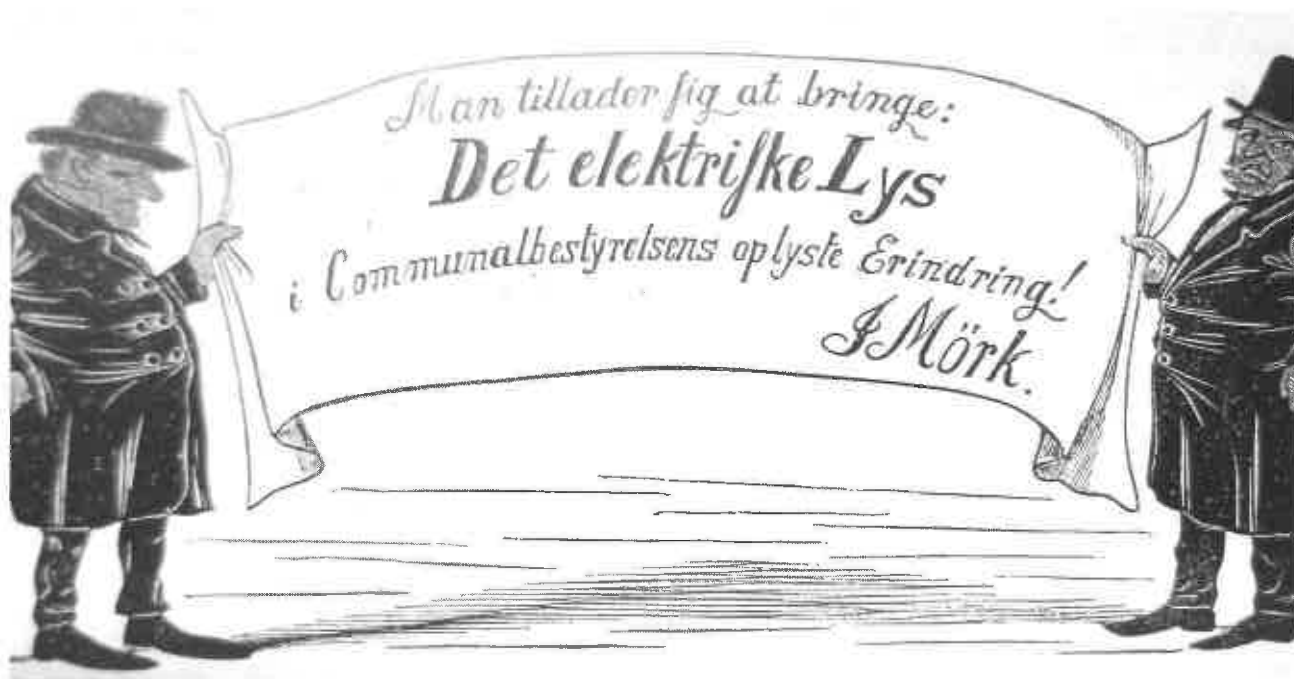 Man tillader sig at bringe:
Det elektriske Lys
i Communalbestyrelsens oplyste Erindring!
J Mörk.